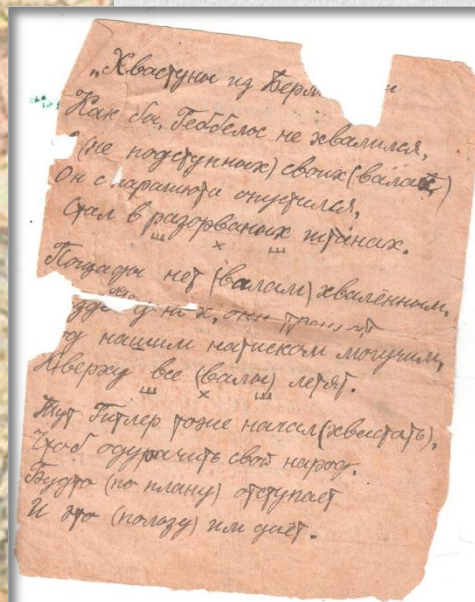 „Хвастуны из
Как бы, Геббельс не хвалился,
(не подступных) своих (валах)
Он с парашюта опустился,
Стал в разорваных штанах.
ш х ш
Пощады нет (валам) хвалённым,
у них, они
нашим натиском могучим,
Кверху все (валы) летят.
ш х ш
Тут Гитлер тоже начал (хвастать),
Чтоб одурачить свой народ.
Будто (по плану) отступает
И это (пользу) им даёт.